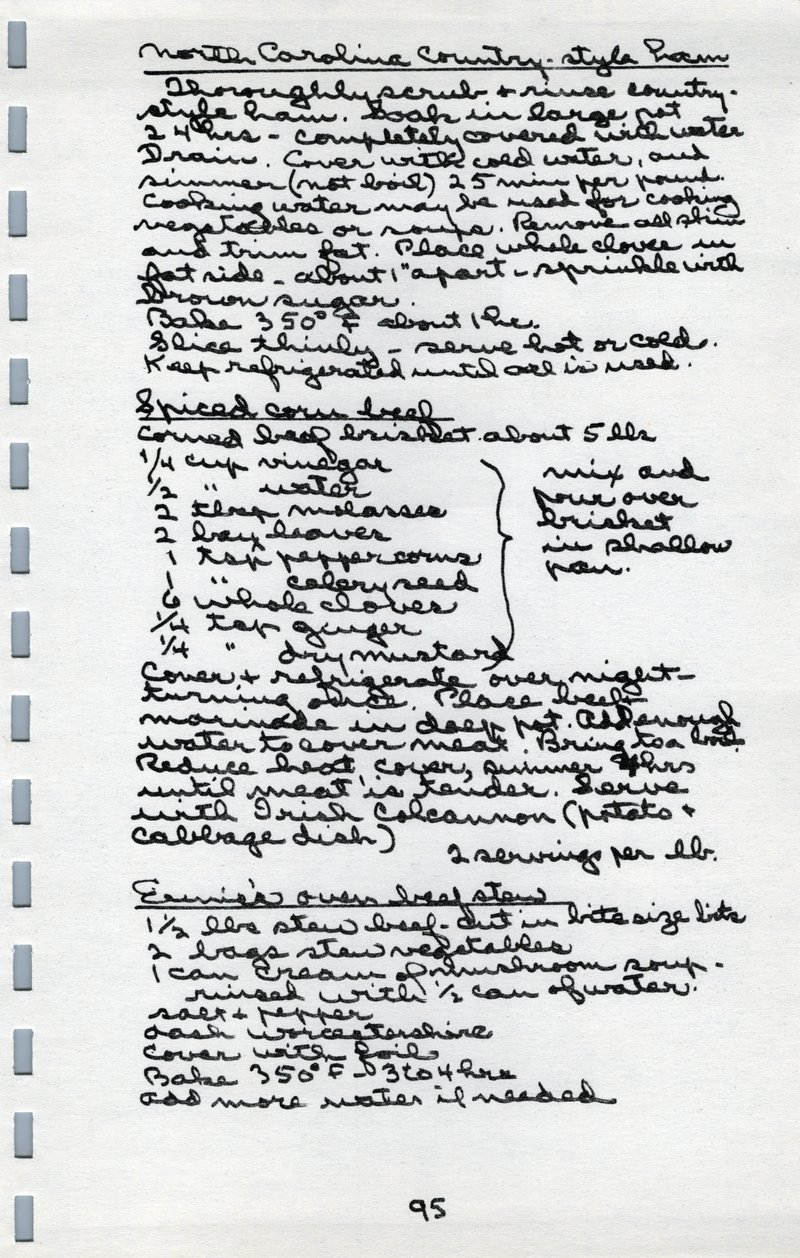 North Carolina Country-style ham
Thoroughly scrub + rinse country-
style ham. Soak in large pot
24 hrs - completely covered with water
Drain. Cover with cold water, and
simmer (not boil) 25 min per pound.
Cooking water may be used for cooking
vegetables or soups. Remove all skin
and trim fat. Place whole cloves in
fat side - about 1" apart - sprinkle with
Brown sugar.
Bake 350° F about 1 hr.
Slice thinly - serve hot or cold.
Keep refrigerated until all is used.
Spiced corn beef
Corned beef brisket. about 5 lbs
1/4 cup vinegar
1/2 " water
2 tbsp molasses
2 bay leaves
1 tsp peppercorns
1 " celery seed
6 whole cloves
1/4 tsp ginger
1/4 " dry mustard
mix and
pour over
brisket
in shallow
pan.
Cover + refrigerate over night -
turning once. Place beef -
marinade in deep pot. Add enough
water to cover meat. Bring to a boil.
Reduce heat, cover, simmer 4 hrs
until meat is tender. Serve
with Irish Colcannon (potato +
cabbage dish)
2 servings per lb.
Ernie's oven beef stew
1 1/2 lbs stew beef - cut in bite size bits
2 bags stew vegetables
1 can Cream of Mushroom soup -
rinsed with 1/2 can of water.
salt + pepper
dash worcestershire
Cover with foil
Bake 350° F - 3 to 4 hrs
add more water if needed
95